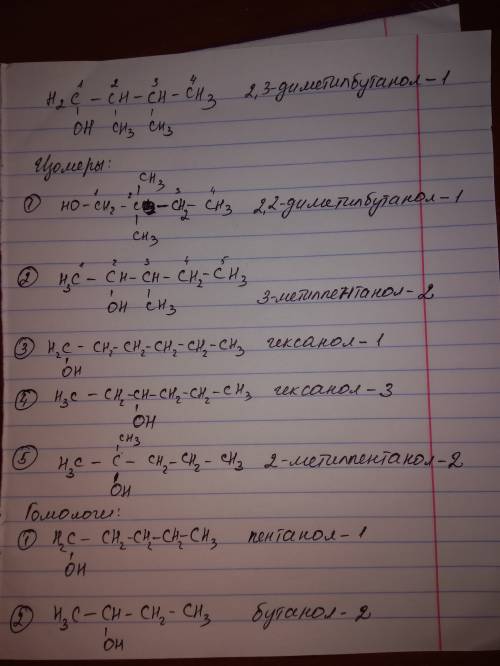 H₂C – CH – CH – CH₃ 2,3-диметилбутанол-1
1 2 3 4
OH CH₃ CH₃
Изомеры:
CH₃
① HO – CH₂ – C – CH₂ – CH₃ 2,2-диметилбутанол-1
1 2 3 4
CH₃
② H₃C – CH – CH – CH₂ – CH₃
1 2 3 4 5
OH CH₃
3-метилпентанол-2
③ H₂C – CH₂ – CH₂ – CH₂ – CH₂ – CH₃ гексанол-1
OH
④ H₃C – CH₂ – CH – CH₂ – CH₂ – CH₃ гексанол-3
OH
CH₃
⑤ H₃C – C – CH₂ – CH₂ – CH₃ 2-метилпентанол-2
OH
Гомологи:
① H₂C – CH₂ – CH₂ – CH₂ – CH₃ пентанол-1
OH
② H₃C – CH – CH₂ – CH₃ бутанол-2
OH